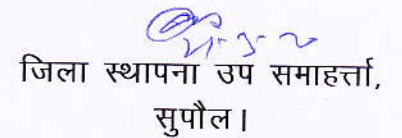 जिला स्थापना उप समाहर्त्ता,
सुपौल।